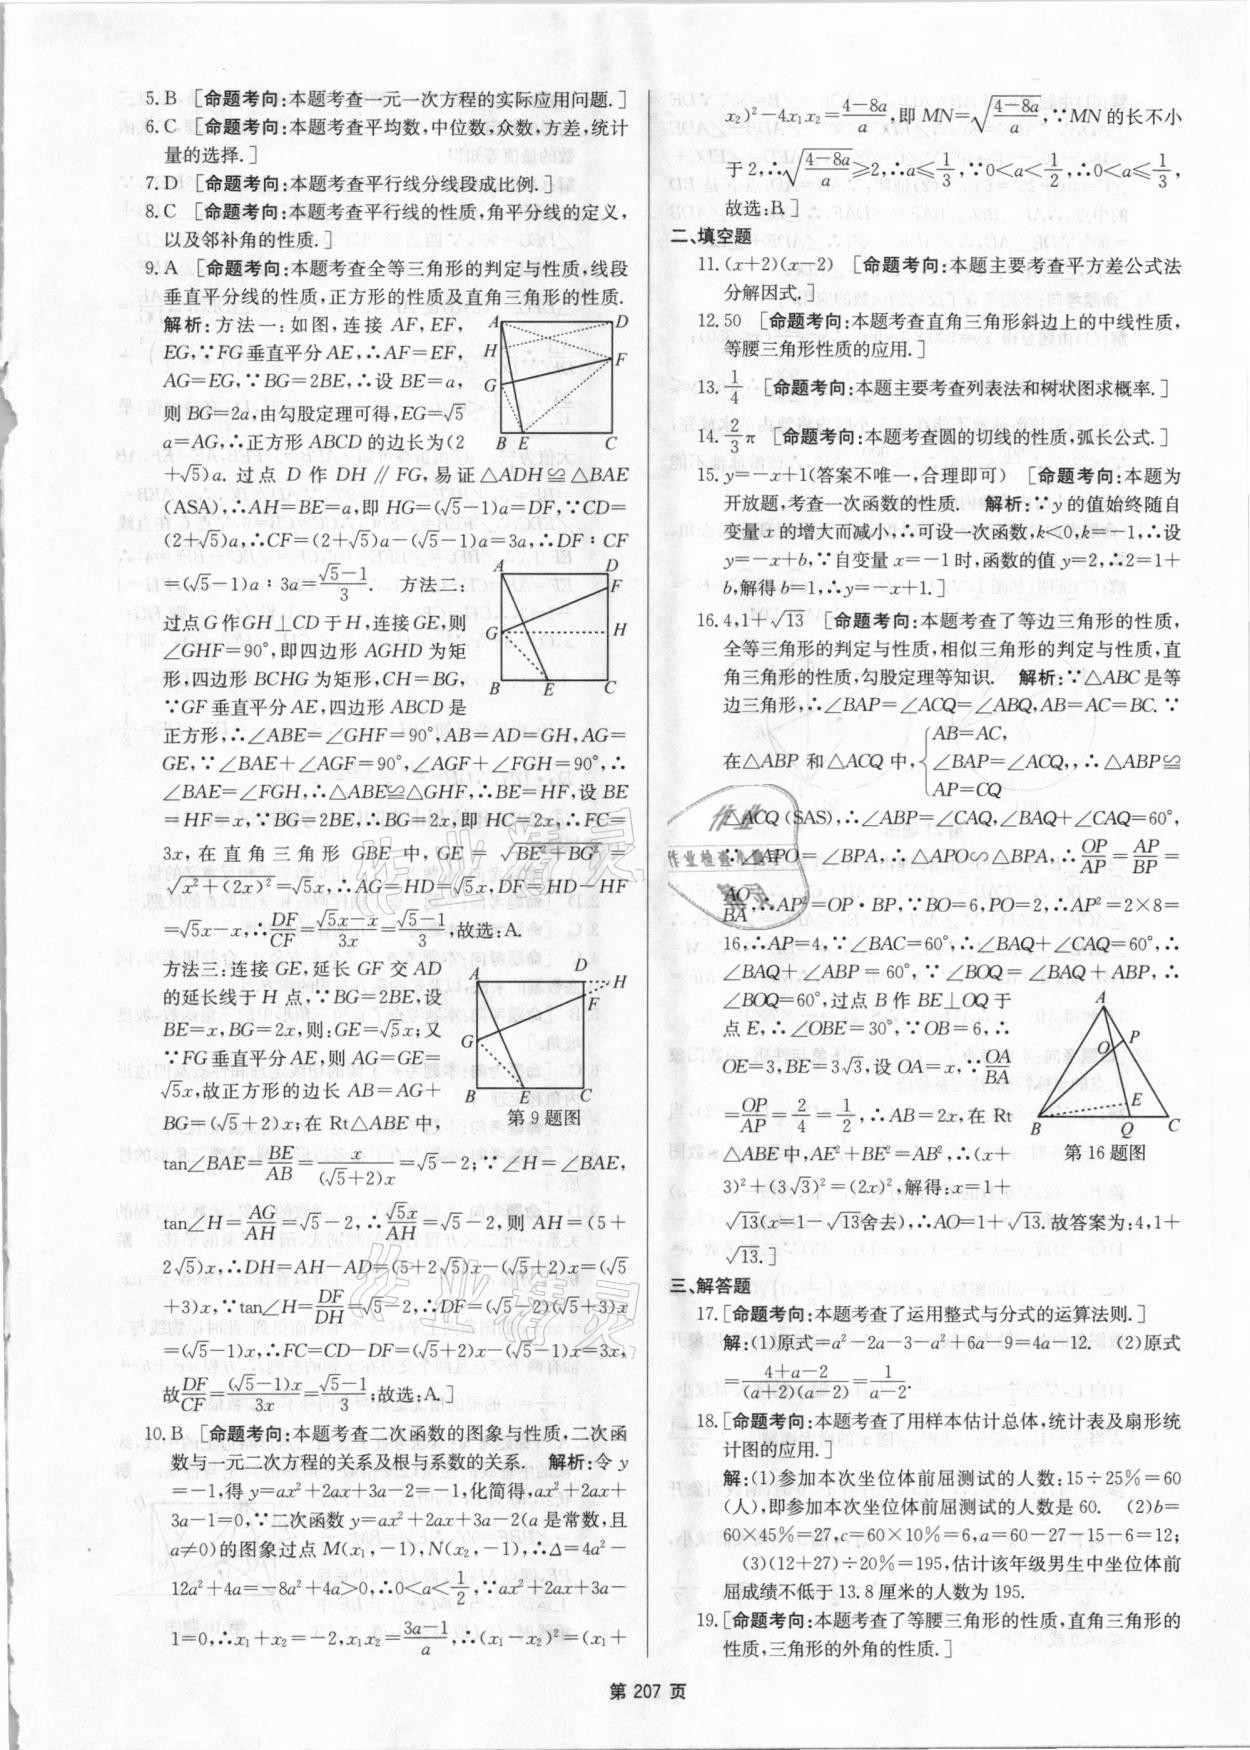 5. B [命题考向:本题考查一元一次方程的实际应用问题.]
6. C [命题考向:本题考查平均数,中位数,众数,方差,统计
量的选择.]
7. D [命题考向:本题考查平行线分线段成比例.]
8. C [命题考向:本题考查平行线的性质,角平分线的定义,
以及邻补角的性质.]
9. A [命题考向:本题考查全等三角形的判定与性质,线段
垂直平分线的性质,正方形的性质及直角三角形的性质.
解析:方法一:如图,连接 AF,EF,
EG,∵FG垂直平分AE,∴AF=EF,
AG=EG,∵BG=2BE,∴设 BE=a,
则BG=2a,由勾股定理可得,EG=√5
a=AG,∴正方形ABCD的边长为(2
+√5)a. 过点 D 作 DH∥FG,易证△ADH≌△BAE
(ASA),∴AH=BE=a,即 HG=(√5-1)a=DF,∵CD=
(2+√5)a,∴CF=(2+√5)a-(√5-1)a=3a,∴DF∶CF
=(√5-1)a∶3a=(√5-1)/3. 方法二:
过点G作GH⊥CD于H,连接GE,则
∠GHF=90°,即四边形 AGHD 为矩
形,四边形BCHG为矩形,CH=BG,
∵GF垂直平分AE,四边形ABCD是
正方形,∴∠ABE=∠GHF=90°,AB=AD=GH,AG=
GE,∵∠BAE+∠AGF=90°,∠AGF+∠FGH=90°,∴
∠BAE=∠FGH,∴△ABE≌△GHF,∴BE=HF,设BE
=HF=x,∵BG=2BE,∴BG=2x,即HC=2x,∴FC=
3x,在直角三角形 GBE 中,GE=√(BE²+BG²)=
√(x²+(2x)²)=√5x,∴AG=HD=√5x,DF=HD-HF
=√5x-x,∴DF/CF=(√5x-x)/3x=(√5-1)/3,故选:A.
方法三:连接GE,延长 GF 交 AD
的延长线于 H 点,∵BG=2BE,设
BE=x,BG=2x,则:GE=√5x;又
∵FG垂直平分AE,则 AG=GE=
√5x,故正方形的边长 AB=AG+
BG=(√5+2)x;在 Rt△ABE中,
第9题图
tan∠BAE=BE/AB=x/((√5+2)x)=√5-2;∵∠H=∠BAE,
tan∠H=AG/AH=√5-2,∴√5x/AH=√5-2,则 AH=(5+
2√5)x,∴DH=AH-AD=(5+2√5)x-(√5+2)x=(√5
+3)x,∵tan∠H=DF/DH=√5-2,∴DF=(√5-2)(√5+3)x
=(√5-1)x,∴FC=CD-DF=(√5+2)x-(√5-1)x=3x,
故DF/CF=(√5-1)x/3x=(√5-1)/3;故选:A.]
10. B [命题考向:本题考查二次函数的图象与性质,二次函
数与一元二次方程的关系及根与系数的关系. 解析:令y
=-1,得y=ax²+2ax+3a-2=-1,化简得,ax²+2ax+
3a-1=0,∵二次函数y=ax²+2ax+3a-2(a是常数,且
a≠0)的图象过点M(x₁,-1),N(x₂,-1),∴Δ=4a²-
12a²+4a=-8a²+4a>0,∴0<a<1/2,∵ax²+2ax+3a-
1=0,∴x₁+x₂=-2,x₁x₂=(3a-1)/a,∴(x₁-x₂)²=(x₁+
x₂)²-4x₁x₂=(4-8a)/a,即 MN=√((4-8a)/a),∵MN的长不小
于2,∴√((4-8a)/a)≥2,∴a≤1/3,∵0<a<1/2,∴0<a≤1/3,
故选:B.]
二、填空题
11. (x+2)(x-2) [命题考向:本题主要考查平方差公式法
分解因式.]
12. 50 [命题考向:本题考查直角三角形斜边上的中线性质,
等腰三角形性质的应用.]
13. 1/4 [命题考向:本题主要考查列表法和树状图求概率.]
14. 2/3π [命题考向:本题考查圆的切线的性质,弧长公式.]
15. y=-x+1(答案不唯一,合理即可) [命题考向:本题为
开放题,考查一次函数的性质. 解析:∵y的值始终随自
变量x的增大而减小,∴可设一次函数,k<0,k=-1,∴设
y=-x+b,∵自变量x=-1时,函数的值y=2,∴2=1+
b,解得b=1,∴y=-x+1.]
16. 4,1+√13 [命题考向:本题考查了等边三角形的性质,
全等三角形的判定与性质,相似三角形的判定与性质,直
角三角形的性质,勾股定理等知识. 解析:∵△ABC是等
边三角形,∴∠BAP=∠ACQ=∠ABQ,AB=AC=BC.∵
在△ABP和△ACQ中,{AB=AC, ∠BAP=∠ACQ, AP=CQ,∴△ABP≌
△ACQ(SAS),∴∠ABP=∠CAQ,∠BAQ+∠CAQ=60°,
∵∠APO=∠BPA,∴△APO∽△BPA,∴OP/AP=AP/BP=
AO/BA,∴AP²=OP·BP,∵BO=6,PO=2,∴AP²=2×8=
16,∴AP=4,∵∠BAC=60°,∴∠BAQ+∠CAQ=60°,∴
∠BAQ+∠ABP=60°,∵∠BOQ=∠BAQ+ABP,∴
∠BOQ=60°,过点 B 作 BE⊥OQ 于
点 E,∴∠OBE=30°,∵OB=6,∴
OE=3,BE=3√3,设 OA=x,∵OA/BA
=OP/AP=2/4=1/2,∴AB=2x,在 Rt
△ABE中,AE²+BE²=AB²,∴(x+
第16题图
3)²+(3√3)²=(2x)²,解得:x=1+
√13(x=1-√13舍去),∴AO=1+√13.故答案为:4,1+
√13.]
三、解答题
17. [命题考向:本题考查了运用整式与分式的运算法则.]
解:(1)原式=a²-2a-3-a²+6a-9=4a-12. (2)原式
=(4+a-2)/((a+2)(a-2))=1/(a-2).
18. [命题考向:本题考查了用样本估计总体,统计表及扇形统
计图的应用.]
解:(1)参加本次坐位体前屈测试的人数:15÷25%=60
(人),即参加本次坐位体前屈测试的人数是60. (2)b=
60×45%=27,c=60×10%=6,a=60-27-15-6=12;
(3)(12+27)÷20%=195,估计该年级男生中坐位体前
屈成绩不低于13.8厘米的人数为195.
19. [命题考向:本题考查了等腰三角形的性质,直角三角形的
性质,三角形的外角的性质.]
第 207 页